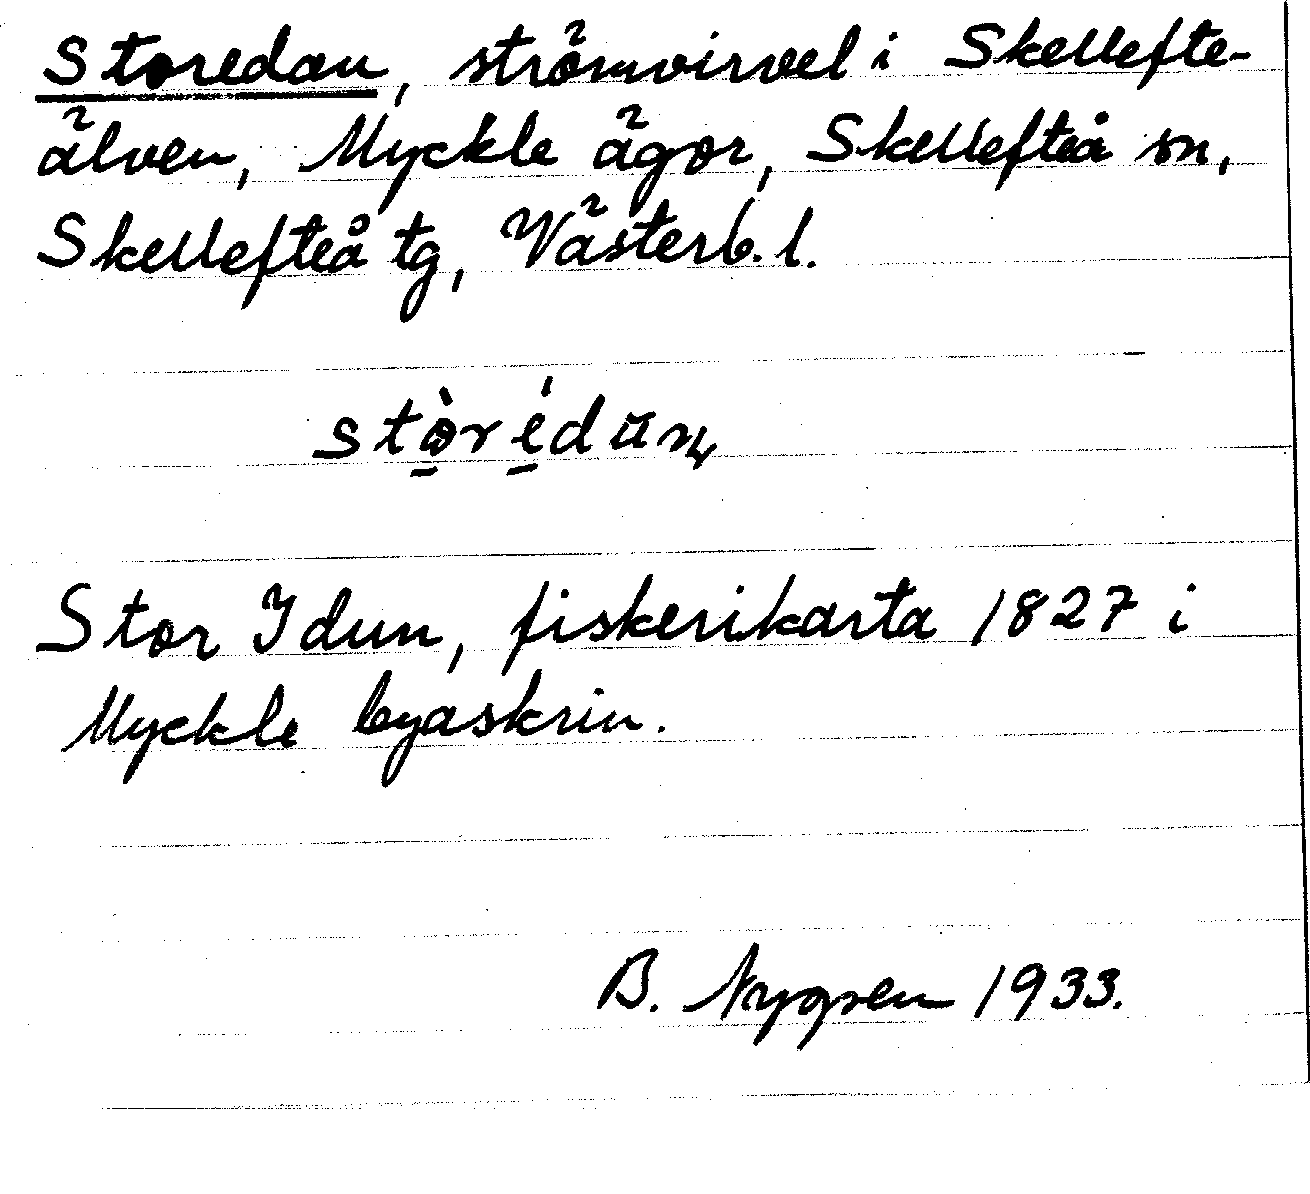 Storedan, strömvirvel i Skellefte-
älven, Myckle ägor, Skellefteå sn,
Skellefteå tg, Västerb. l.
Stor Idun, fiskerikarta 1827 i
Myckle byaskrin.
B. Nygren 1933.